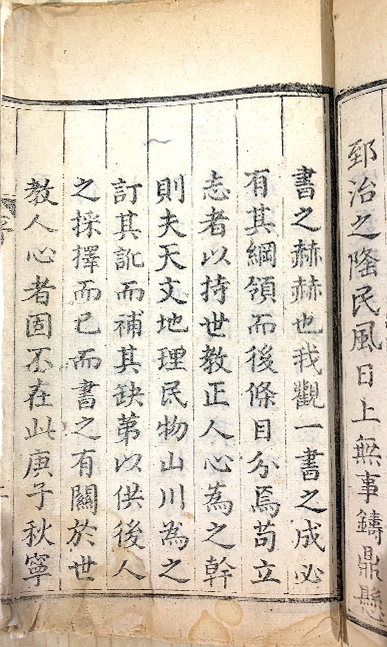 郅治之隆民風日上無事鑄鼎懸
書之赫赫也我觀一書之成必
有其綱領而後條目分焉苟立
志者以持世教正人心為之幹
則夫天文地理民物山川為之
訂其訛而補其缺苐以供後人
之採擇而已而書之有關於世
教人心者固不在此庚子秋寧
序